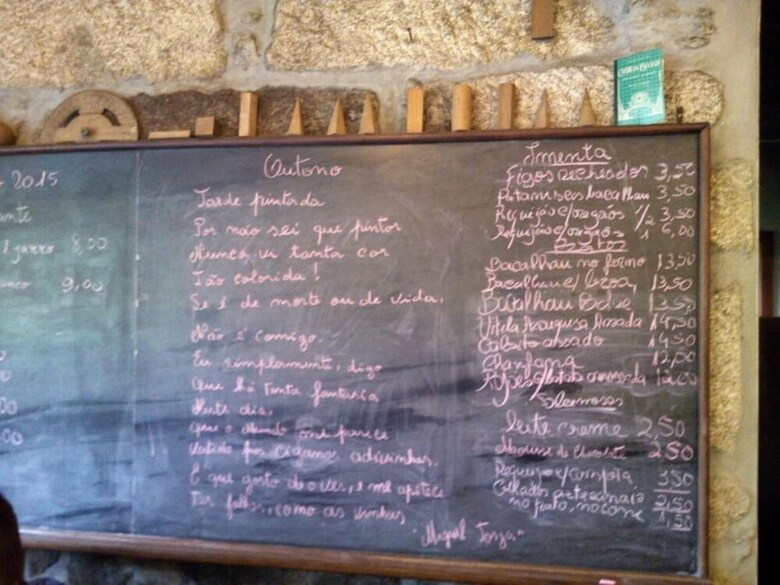 2015
jarro 8,00
9,00
Outono
Tarde pintada
Por não sei que pintor
Nunca vi tanta cor
Tão colorida!
Se é de morte ou de vida,
Não é comigo.
Eu, simplesmente, digo
Que há tanta fantasia
Neste dia,
Que o Mundo me parece
Vestido por ciganas adivinhas,
E que gosto de o ver, e me apetece
Ter folhas, como as vinhas
"Miguel Torga"
Ementa
Figos recheados 3,50
Pataniscas bacalhau 3,50
Requeijão c/ orégãos 1/2 3,50
Requeijão c/ orégãos 1 6,00
Pratos
Bacalhau no forno 13,50
Bacalhau c/ broa, 13,50
Bacalhau 13,50
Vitela Assada 14,50
Cabrito assado 14,50
Chanfana 12,00
12,00
Sobremesas
Leite creme 2,50
Mousse de chocolate 2,50
Requeijão c/ compota 3,50
Gelados artesanais
no prato, no cone 2,50
1,50